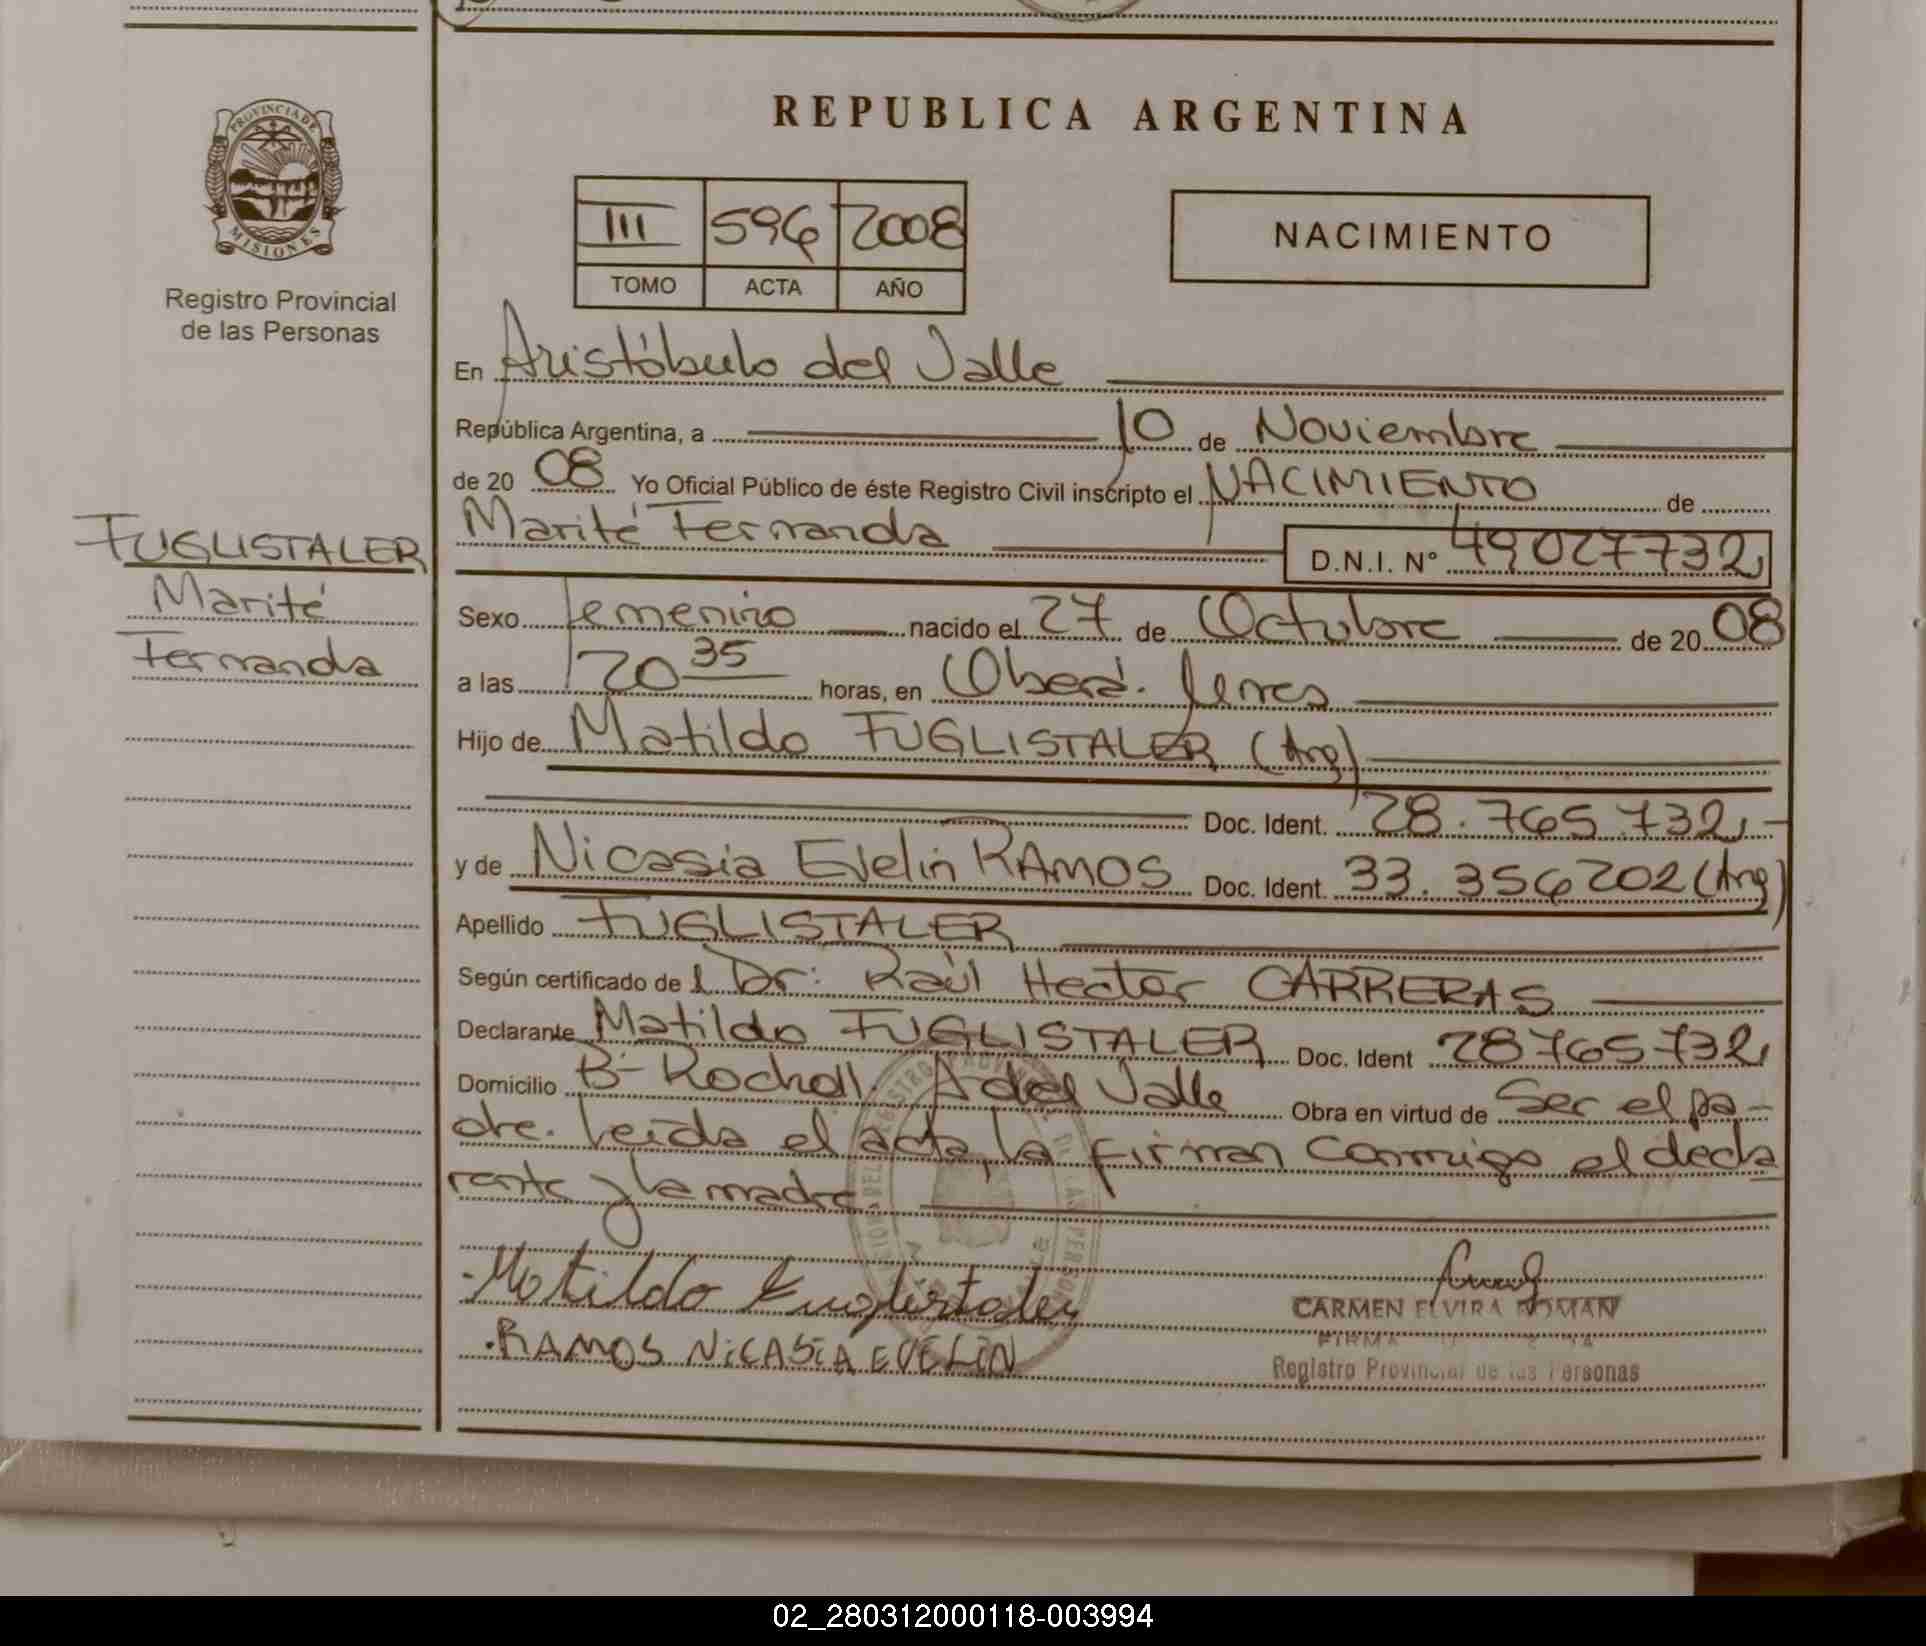 PROVINCIA DE
MISIONES
Registro Provincial
de las Personas
FUGLISTALER
Marité
Fernanda
REPUBLICA ARGENTINA
III 596 2008
TOMO ACTA AÑO
NACIMIENTO
En Aristóbulo del Valle
República Argentina, a 10 de Noviembre
de 20 08 Yo Oficial Público de éste Registro Civil inscripto el NACIMIENTO de
Marité Fernanda D.N.I. Nº 49027732
Sexo femenino nacido el 27 de Octubre de 20 08
a las 20 35 horas, en Oberá
Hijo de Matildo FUGLISTALER (Arg)
Doc. Ident. 28.765.732
y de Nicasia Evelin RAMOS Doc. Ident. 33.356202 (Arg)
Apellido FUGLISTALER
Según certificado de l Dr: Raúl Hector CARRERAS
Declarante Matildo FUGLISTALER Doc. Ident 28765732
Domicilio Bº Rochall. A del Valle Obra en virtud de Ser el pa-
dre. Leída el acta, la firman conmigo el decla
rante y la madre
Matildo Fuglistaler
RAMOS NICASIA EVELIN
CARMEN ELVIRA ROMAN
FIRMA
Registro Provincial de las Personas
02_280312000118-003994